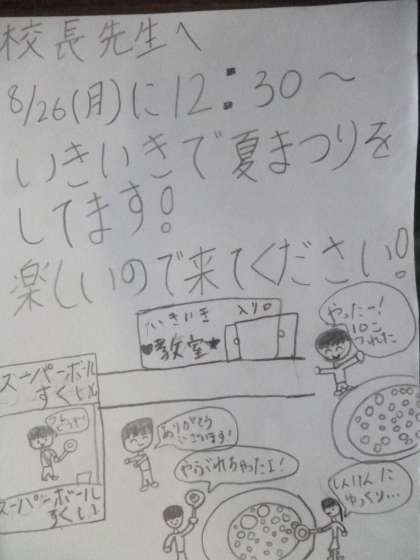 校長先生へ
8/26(月)に12:30〜
いきいきで夏まつりを
してます!
楽しいので来てください!
いきいき
♥教室★
入り口
やったー!
10こ
つれた
スーパーボール
すくい
ありがとう
ございます!
やぶれちゃったよ!
しんけんに
ゆっくり…
スーパーボール
すくい